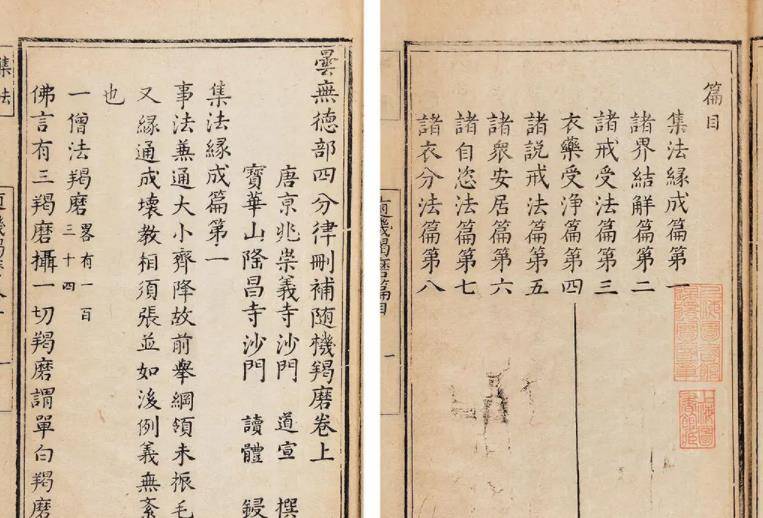 篇目
集法緣成篇第一
諸界結解篇第二
諸戒受法篇第三
衣藥受淨篇第四
諸說戒法篇第五
諸衆安居篇第六
諸自恣法篇第七
諸衣分法篇第八
機羯磨篇目
一
曇無德部四分律刪補随機羯磨卷上
唐京兆崇義寺沙門 道宣 撰
寶華山隆昌寺沙門 讀體 鋟
集法緣成篇第一
事法兼通大小齊降故前舉綱領未振毛
又緣通成壞教相須張並如後例義無紊
也
一僧法羯磨 畧有一百
三十四
佛言有三羯磨攝一切羯磨謂單白羯磨
集法